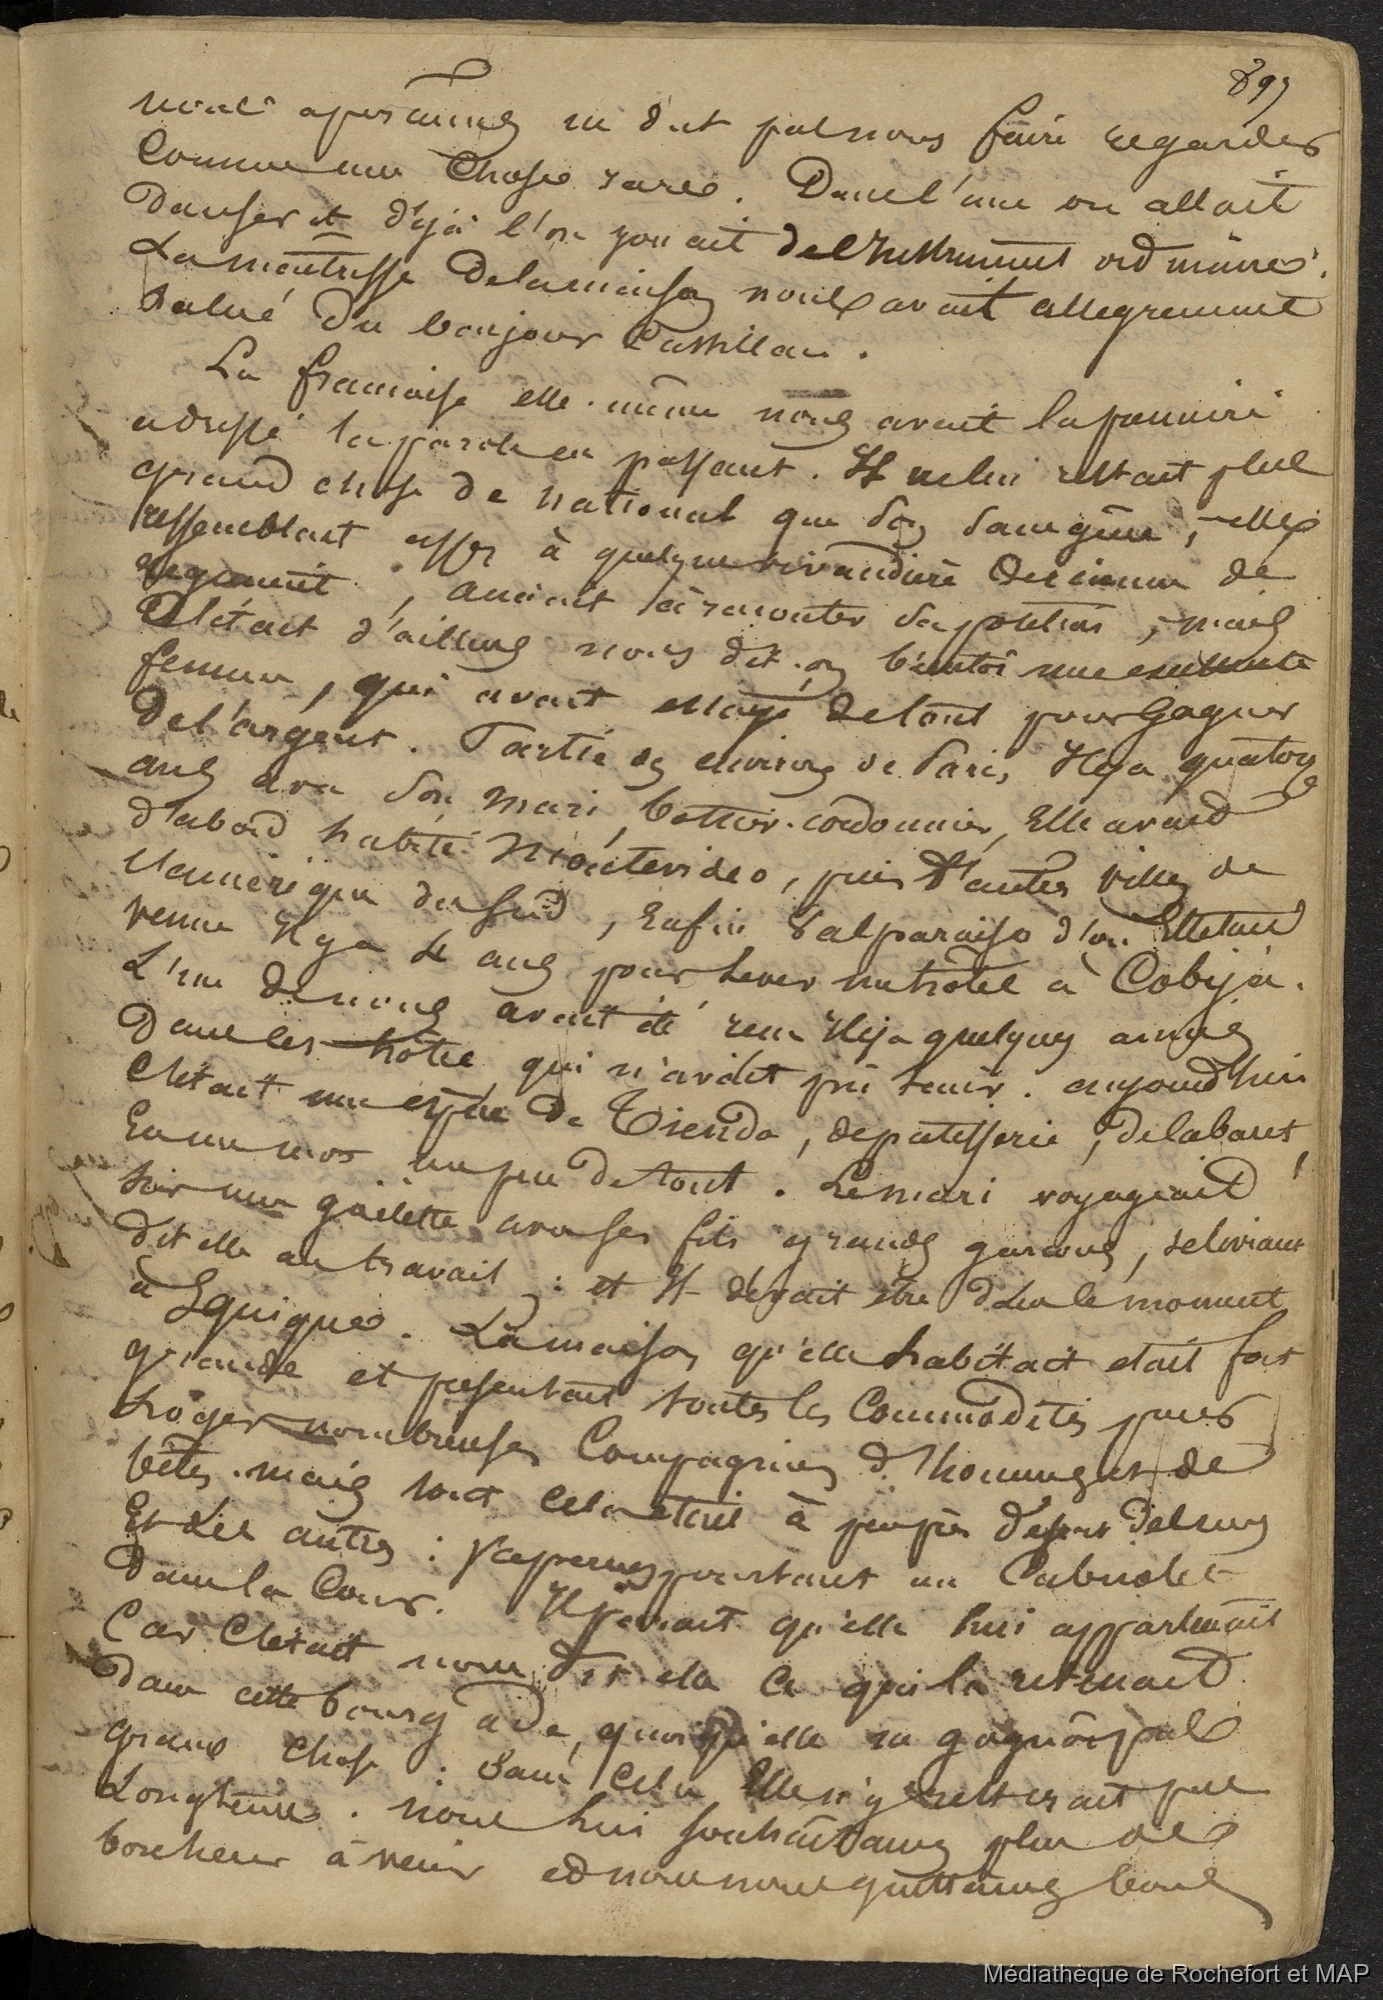 897
nous aperçumes ne dut pas nous faire regarder
Comme une Chose rare. Dans l'une on allait
danser et déja l'on jouait de l'Instrument ordinaire.
La maitresse de la maison nous avait allegrement
salué du bonjour Castillan.
La francaise elle-même nous avait la premiere
adressé la parole en passant. Il ne lui restait plus
grand chose de national que son sans gêne, elle
ressemblait assez à quelque vivandière de
regiment, à raconter sa position, mais
C'était d'ailleurs nous dit-on bientôt une excellente
femme, qui avait essayé de tout pour Gagner
De l'argent. Partie des environs de Paris, Il y a quatorze
ans avec son mari, bottier-cordonnier, Elle avait
d'abord habité Montevideo, puis d'autres villes de
l'amérique du sud, Enfin Valparaiso d'où Elle était
venue Il y a 4 ans pour lever un hotel à Cobija.
L'un de nous avait été reçu Il y a quelques années
Dans les hôtel qui n'avait pu tenir. aujourd'hui
C'était une espèce de Tienda, de patisserie, de cabaret,
En un mot un peu de tout. Le mari voyageait
sur une goëlette avec ses fils grands garcons, se livrant
dit elle au travail : et Il devait être dans le moment
à Iquique. La maison qu'elle habitait etait fort
grande et présentait toutes les Commodités pour
Loger nombreuses Compagnies d'hommes et de
bêtes. mais tout cela etait à peu près desert
Et des autres : J'aperçus pourtant un Cabriolet
Dans la Cour. Il parait qu'elle lui appartenait
Car C'était nous dit elle Ce qui la retenait
Dans cette bourgade, quoiqu'elle ne gagnât pas
grand Chose : Sans Cela Elle n'y resterait pas
Longtems. nous lui souhaitames plus de
bonheur à venir et nous nous quittames bons
Médiathèque de Rochefort et MAP